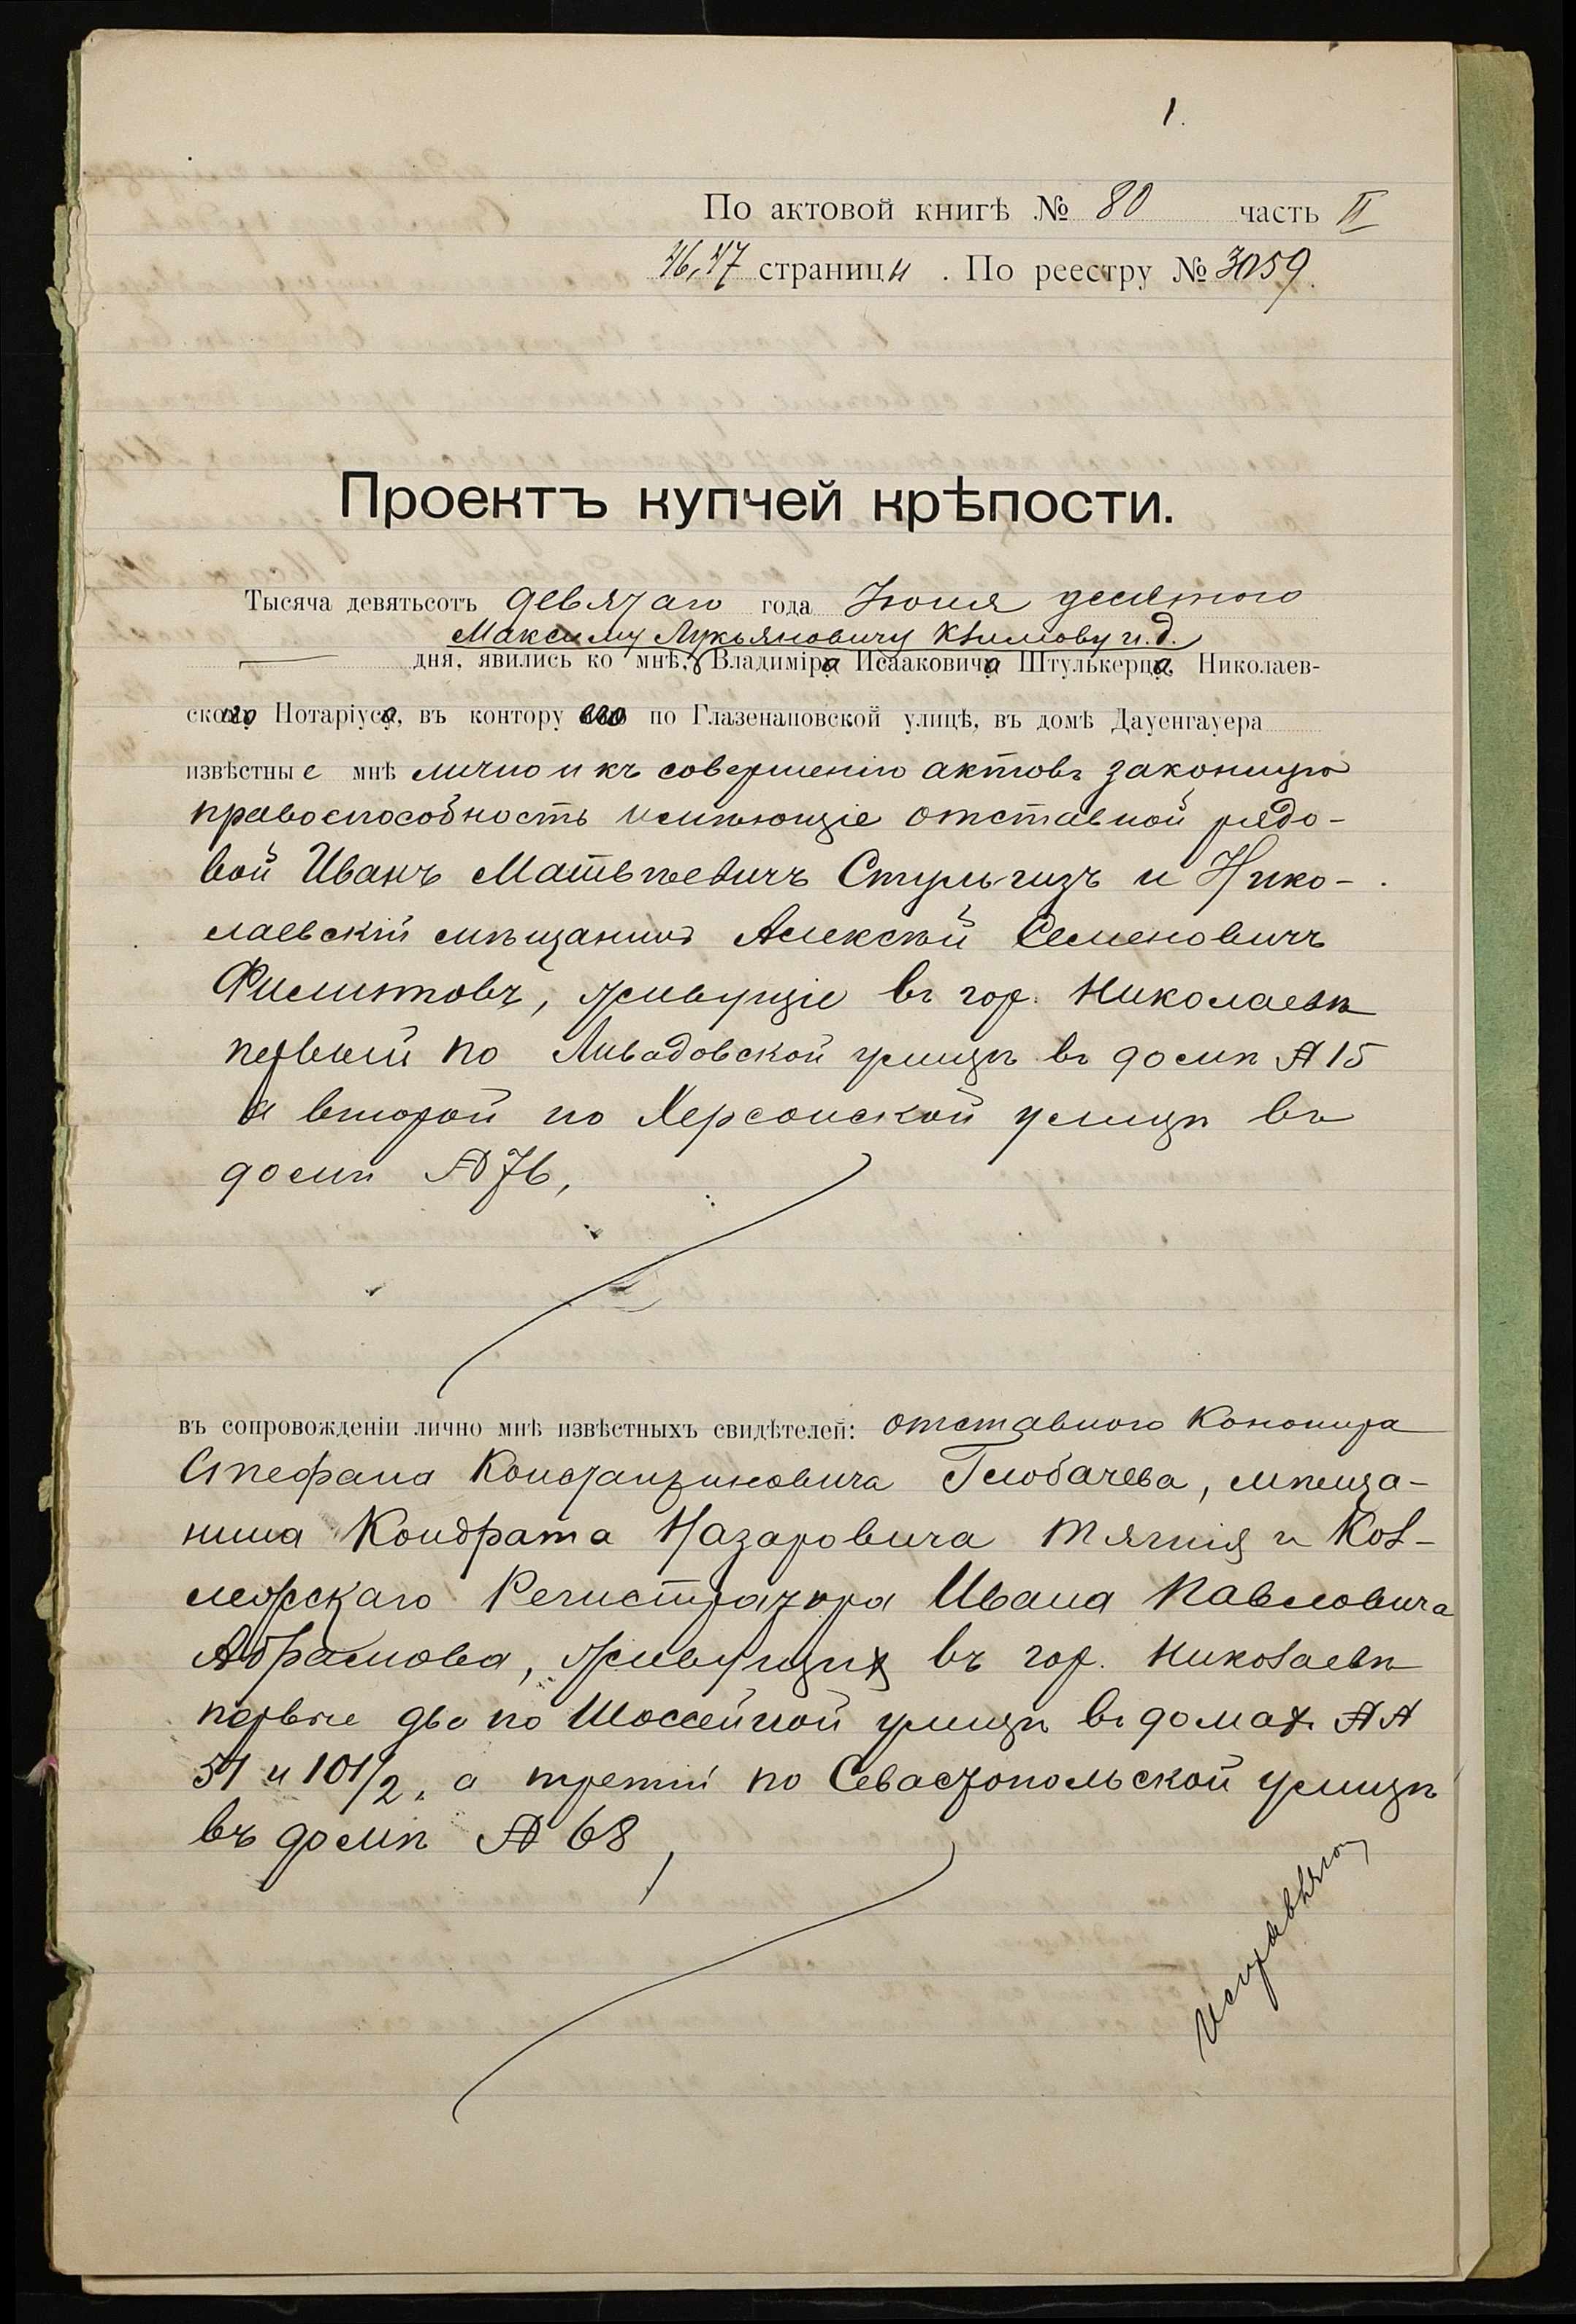 1.
По актовой книгѣ № 80 часть II
46, 47 страницы . По реестру № 3059.
Проектъ купчей крѣпости.
Тысяча девятьсотъ девятаго года Іюня десятого
Максиму Лукьяновичу Климову и. д.
дня, явились ко мнѣ, Владиміра Исааковича Штулькерца, Николаев-
скаго Нотаріуса, въ контору его по Глазенаповской улицѣ, въ домѣ Дауенгауера
извѣстные мнѣ лично и къ совершенію актовъ законную
правоспособность имѣющіе отставной рядо-
вой Иванъ Матвѣевичъ и Нико-
лаевскій мѣщанинъ Алексѣй Семеновичъ
Филитовъ, живущіе въ гор. Николаевѣ
первый по Ливадовской улицѣ въ домѣ № 15
а второй по Херсонской улицѣ въ
домѣ № 76,
въ сопровожденіи лично мнѣ извѣстныхъ свидѣтелей: отставного Канонира
Стефана Константиновича Глобачева, мѣща-
нина Кондрата Назаровича Тягнія и Кол-
лежскаго Регистратора Ивана Павловича
Абрамова, живущихъ въ гор. Николаевѣ
первые два по Шоссейной улицѣ въ домахъ №№
51 и 101/2, а третій по Севастопольской улицѣ
въ домѣ № 68,